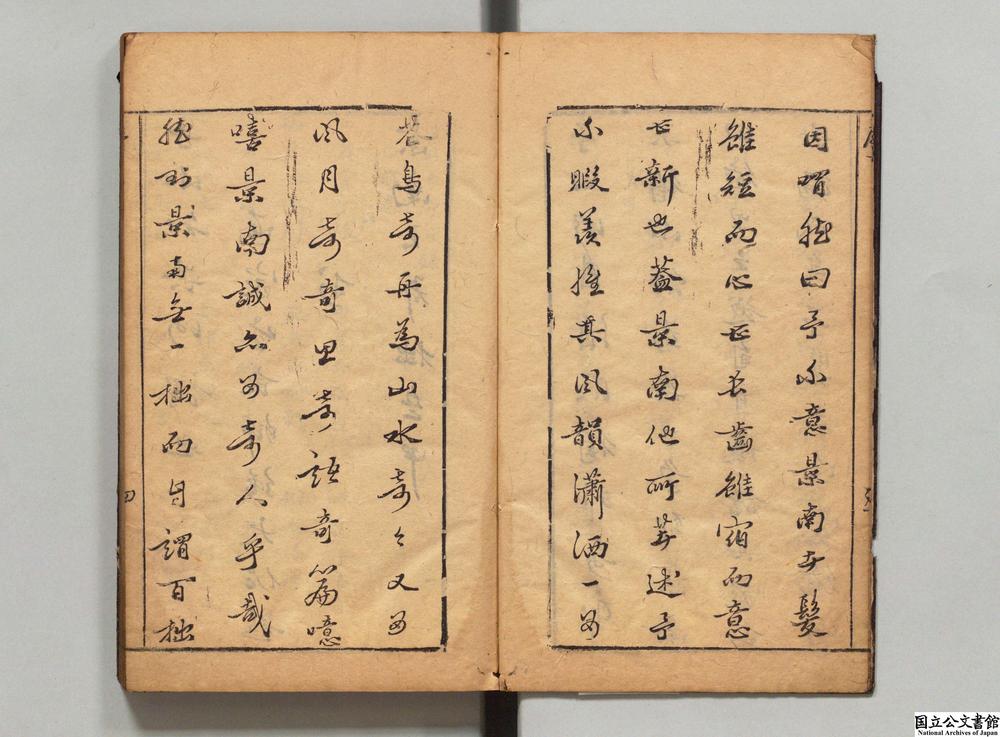 因喟然曰予不意景南之髮
雖短而心甚長齒雖宿而意
甚新也蓋景南他所著述予
不暇羨推其風韻瀟洒一如
花鳥奇再為山水奇奇又如
風月奇奇思奇語奇篇噫
嘻景南誠亦可奇人乎哉
然則景南無一拙而自謂百拙
国立公文書館
National Archives of Japan